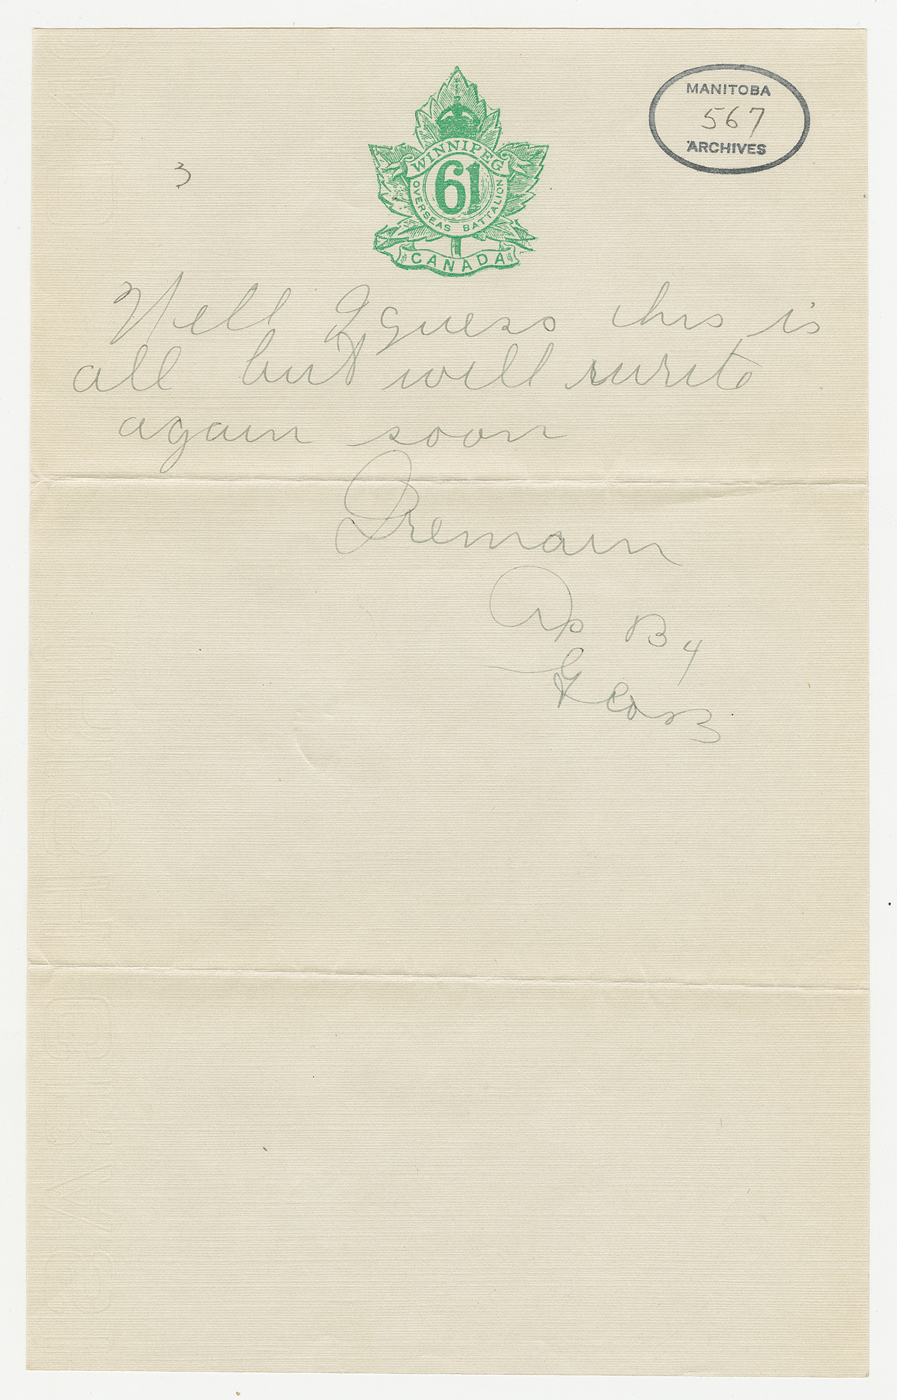 3
WINNIPEG
61
OVERSEAS BATTALION
CANADA
MANITOBA
567
ARCHIVES
Well I guess this is
all but will write
again soon
I remain
As By
Geo